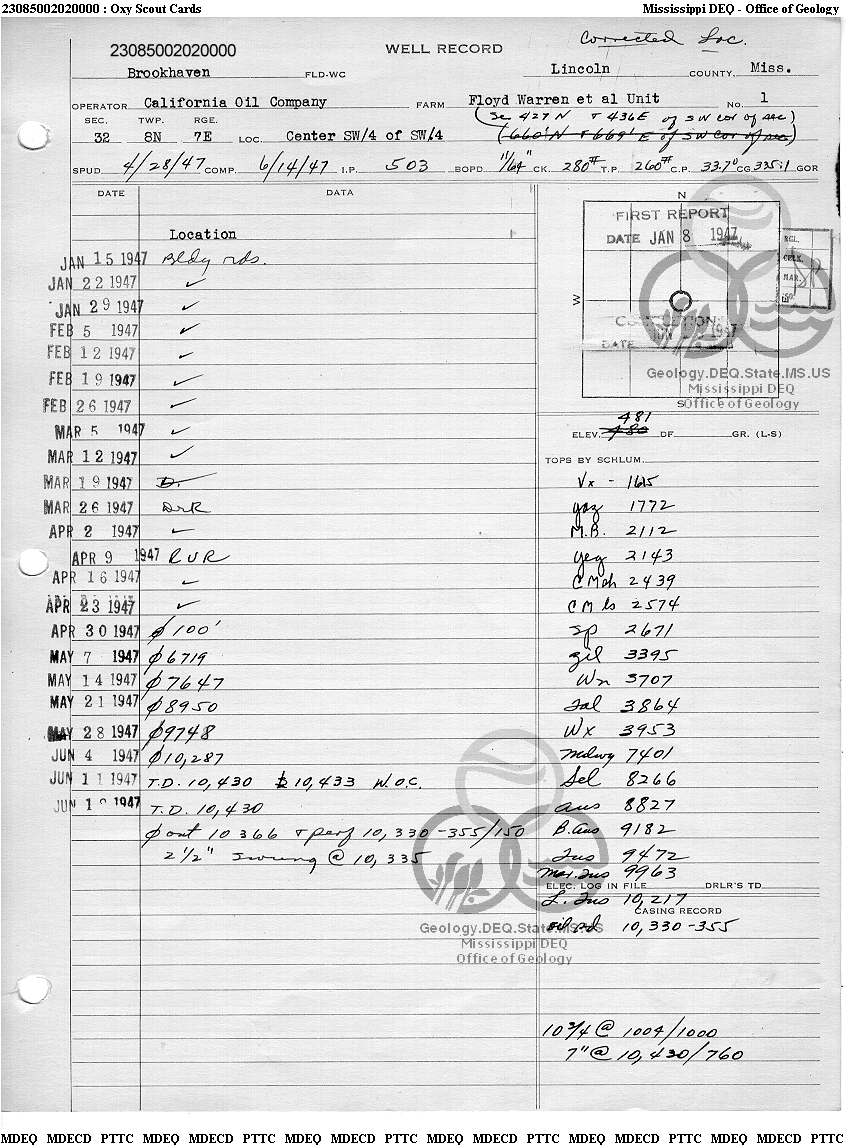 23085002020000 : Oxy Scout Cards Mississippi DEQ - Office of Geology
Corrected Loc.
23085002020000 WELL RECORD
Brookhaven FLD-WC Lincoln COUNTY, Miss.
OPERATOR California Oil Company FARM Floyd Warren et al Unit No. 1
SEC. TWP. RGE. (Sc 427 N + 436 E of SW cor of sec)
32 8N 7E LOC. Center SW/4 of SW/4 (660' N + 669' E of SW cor of sec)
SPUD 4/28/47 COMP. 6/14/47 I.P. 503 BOPD "/64" CK. 280# T.P. 260# C.P. 33.7° CG 335:1 GOR
DATE DATA
Location
JAN 15 1947 Bldg rds.
JAN 22 1947 ✓
JAN 29 1947 ✓
FEB 5 1947 ✓
FEB 12 1947 ✓
FEB 19 1947 ✓
FEB 26 1947 ✓
MAR 5 1947 ✓
MAR 12 1947 ✓
MAR 19 1947 D.
MAR 26 1947 DrR
APR 2 1947 ✓
APR 9 1947 RUR
APR 16 1947 ✓
APR 23 1947 ✓
APR 30 1947 ϕ 100'
MAY 7 1947 ϕ 6719
MAY 14 1947 ϕ 7647
MAY 21 1947 ϕ 8950
MAY 28 1947 ϕ 9748
JUN 4 1947 ϕ 10,287
JUN 11 1947 T.D. 10,430 10,433 W.O.C.
JUN 1 1947 T.D. 10,430
ϕ out 10 366 + perf 10,330-355/150
2 1/2" swung @ 10,335
N
FIRST REPORT
DATE JAN 8 1947
RGL.
CELK.
MAR.
W
COMPLETION
DATE JUN 1947
S
Geology.DEQ.State.MS.US
Mississippi DEQ
Office of Geology
481
ELEV. 480 DF. GR. (L-S)
TOPS BY SCHLUM.
Vx - 1615
yaz 1772
M.B. 2112
yeg 2143
C M sh 2439
C M ls 2574
Sp 2671
Zil 3395
Wn 3707
Tal 3864
Wx 3953
Midwy 7401
Sel 8266
Aus 8827
B. Aus 9182
Tus 9472
Mar. Tus 9963
ELEC. LOG IN FILE DRLR'S TD
L. Tus 10,217
CASING RECORD
oil sd 10,330-355
Geology.DEQ.State.MS.US
Mississippi DEQ
Office of Geology
10 3/4 @ 1004/1000
7" @ 10,430/760
MDEQ MDECD PTTC MDEQ MDECD PTTC MDEQ MDECD PTTC MDEQ MDECD PTTC MDEQ MDECD PTTC MDEQ MDECD PTTC